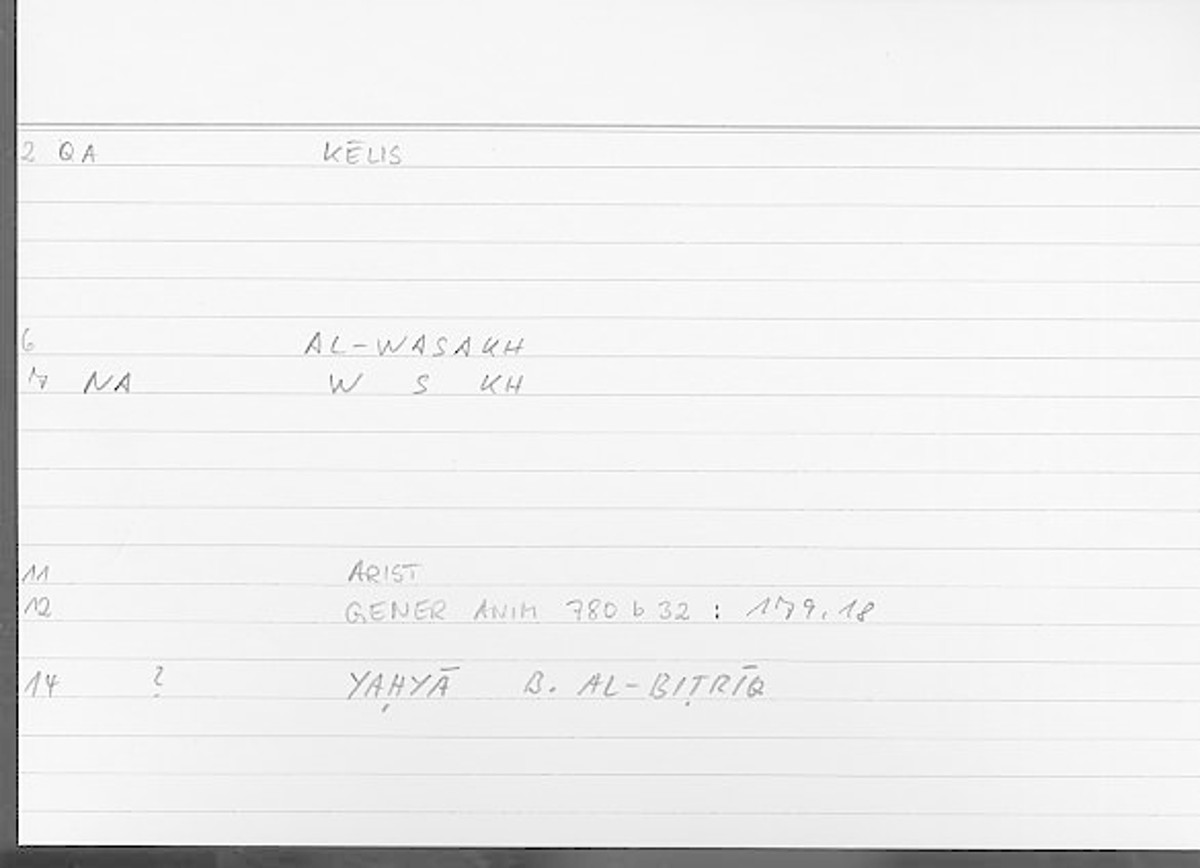 2 QA KĒLIS
6 AL-WASAKH
7 NA W S KH
11 ARIST
12 GENER ANIM 780 b 32 : 179,18
14 ? YAḤYĀ B. AL-BIṬRĪQ